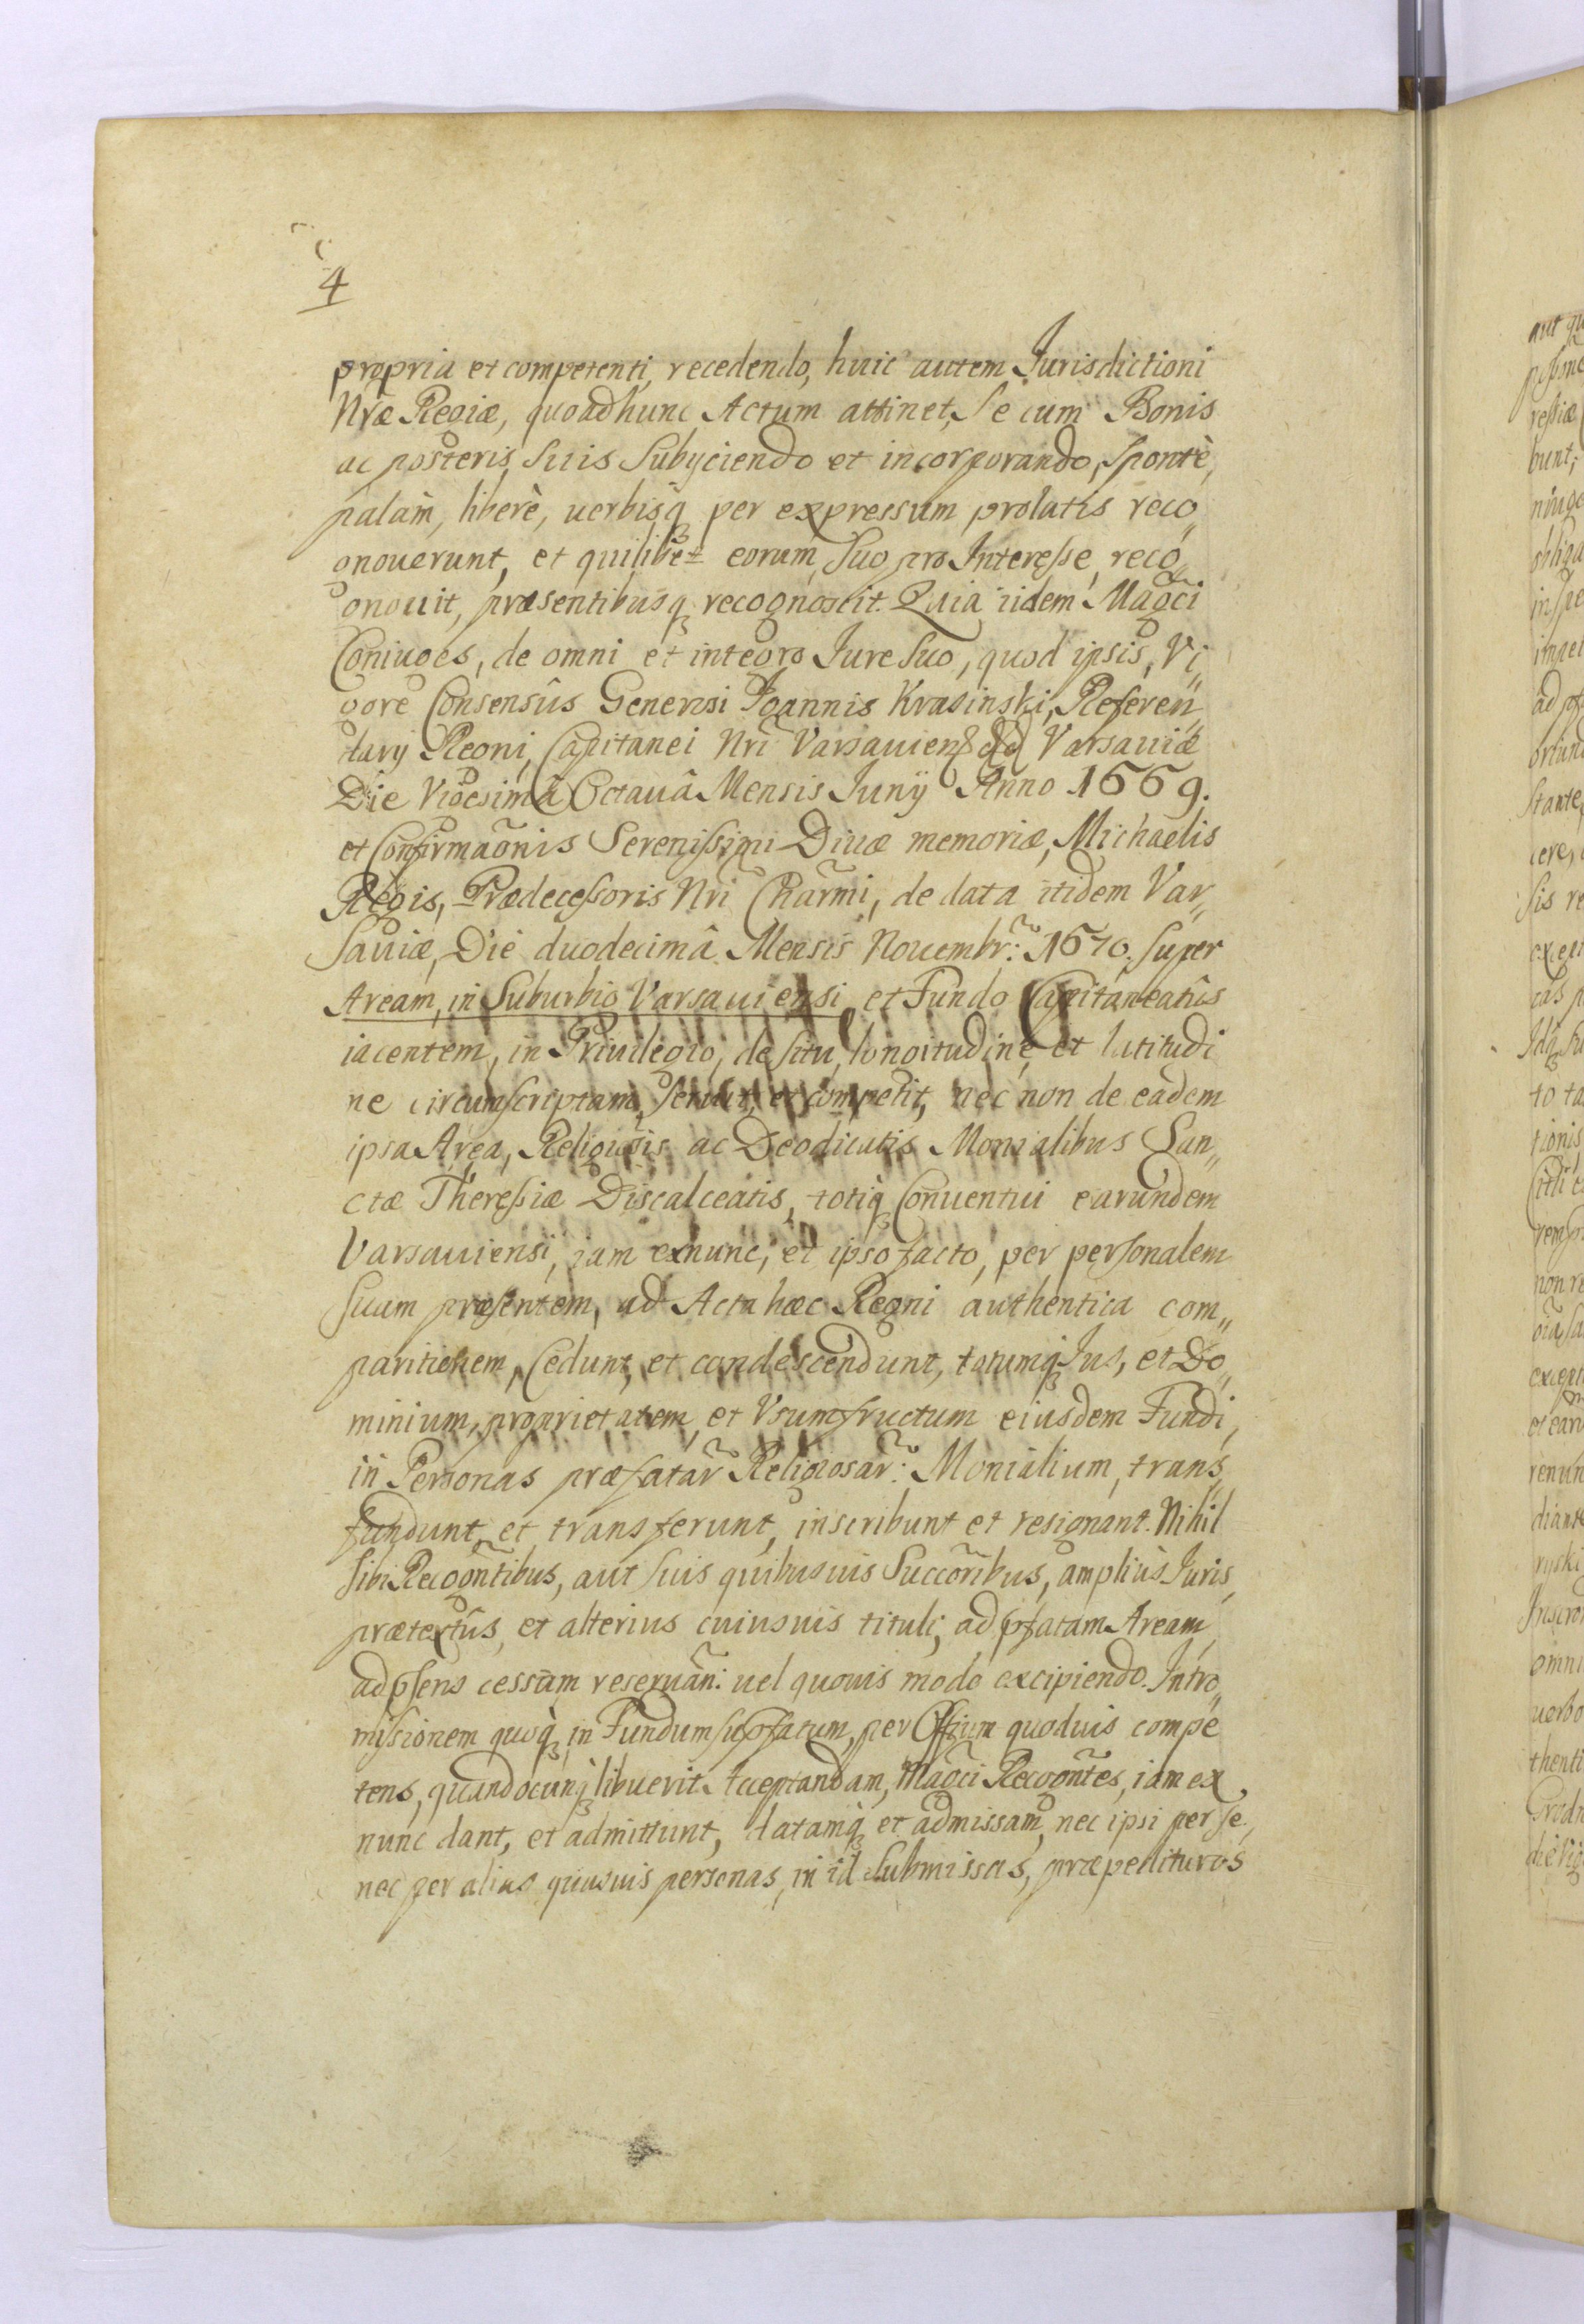 4
propria et competenti, recedendo, huic autem Jurisdictioni
Nr̃æ Regiæ, quoad hunc Actum attinet, Se cum Bonis
ac posteris Suis Subyciendo et incorporando, Spontè,
palàm, liberè, uerbisq̃ per expressum prolatis reco„
gnouerunt, et quilibet eorum, Suo pro Interesse, reco„
gnouit, præsentibusq̃ recognoscit. Quia iidem Magc̃i
Coniuges, de omni et integro Iure Suo, quod ipsis, Vi„
gore Consensûs Generosi Joannis Krasinski, Referen„
tarij Regni, Capitanei Nr̃i Varsauien̄ dd Varsauiæ
Die Vigesimâ Octauâ Mensis Junij Anno 1669.
et Confirmaõnis Serenissimi Diuæ memoriæ, Michaelis
Regis, Prædecessoris Nr̃i Chãrmi, de data itidem Var„
Sauiæ, Die duodecimâ Mensis Nouembr̃: 1670. Super
Aream, in Suburbio Varsauiensi, et Fundo Capitaneatûs
iacentem, in Priuilegio, de situ, longitudine, et latitudi
ne circumscriptam, Seruit, et competit, nec non de eadem
ipsa Area, Religiosis ac Deodicatis Monialibus San„
ctæ Theresiæ Discalceatis, totiq̃ Conuentui earundem
Varsauiensi, iam exnunc, et ipso facto, per personalem
Suam præsentem, ad Acta hæc Regni authentica com„
paritionem, Cedunt, et condescendunt, totumq̃ Jus, et Do„
minium, proprietatem, et Vsumfructum eiusdem Fundi,
in Personas præfatar̃ Religiosar̃: Monialium, trans„
fundunt, et transferunt, inscribunt et resignant. Nihil
Sibi Recogñtibus, aut Suis quibusuis Succõribus, ampliùs Juris,
prætextûs, et alterius cuiusuis tituli, ad pfatam Aream,
ad pñs cessam reseruãn: uel quouis modo excipiendo. Intro„
missionem quoq̃, in Fundum supfatum, per Offium quoduis compe
tens, quandocunq̃ libuerit Acceptandam, Magc̃i Recogñtes, iam ex
nunc dant, et admittunt, datamq̃ et admissam, nec ipsi per se,
nec per alias quasuis personas, in id Submissas, præpedituros